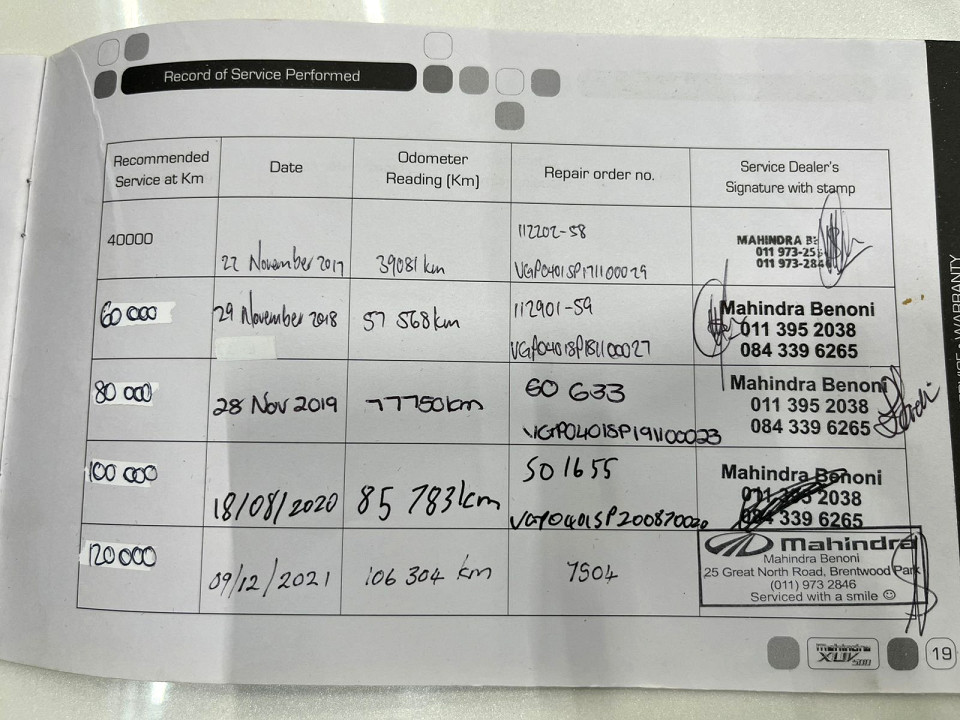 Record of Service Performed
Recommended
Service at Km
Date
Odometer
Reading (Km)
Repair order no.
Service Dealer's
Signature with stamp
40000
22 November 2017
39081 km
112202-58
VGP0401SP171100029
MAHINDRA BE
011 973-25
011 973-2846
60 000
29 November 2018
57 568km
112901-59
VGP0401SP181100027
Mahindra Benoni
011 395 2038
084 339 6265
80 000
28 Nov 2019
77750km
60 633
VGP0401SP191100023
Mahindra Benoni
011 395 2038
084 339 6265
100 000
18/08/2020
85 783km
SO1655
VGP0401SP200870020
Mahindra Benoni
011 395 2038
084 339 6265
120 000
09/12/2021
106 304 km
7504
Mahindra
Mahindra Benoni
25 Great North Road, Brentwood Park
(011) 973 2846
Serviced with a smile ☺
Mahindra
XUV 500
19
WARRANTY